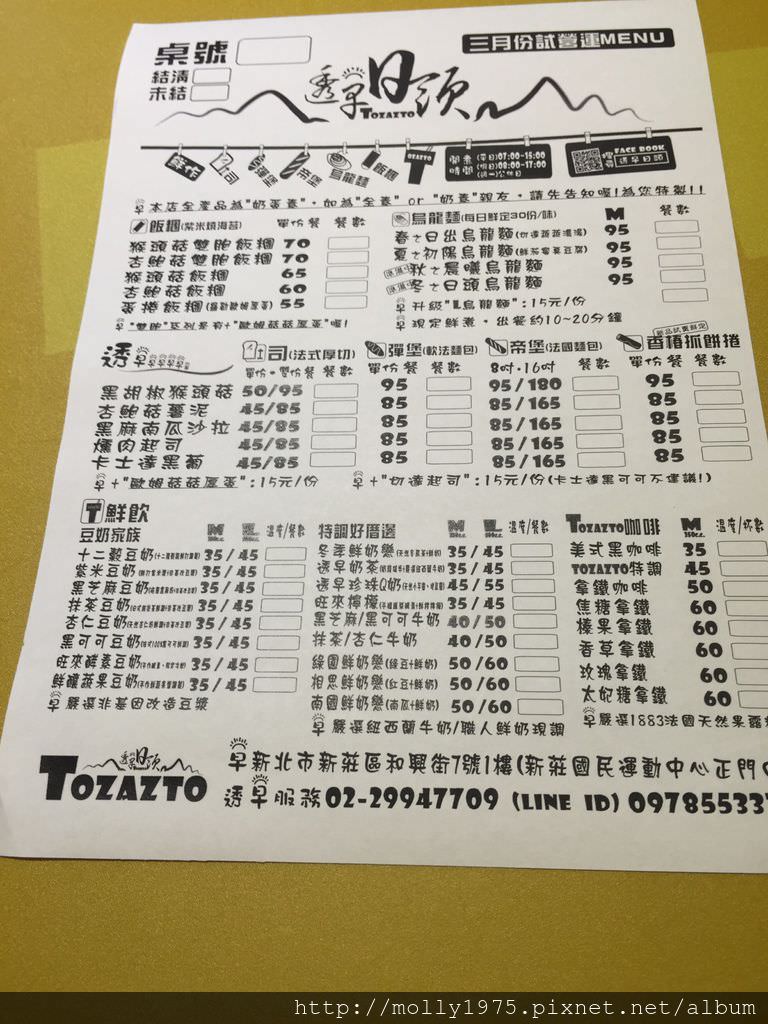 桌號
結清
未結
三月份試營運MENU
透早日頭
TOZAZTO
鮮作 司 彈堡 帝堡 烏龍麵 飯糰 TOZAZTO
開煮時間 (平日)07:00-15:00
(假日)08:00-17:00
(週一)公休日
FACE BOOK
搜尋 透早日頭
早 本店全產品為"奶蛋素"，如為"全素" or "奶素"親友，請先告知喔!為您特製!!
飯糰(紫米燒海苔) 單份餐 餐數
猴頭菇雙胞飯糰 70
杏鮑菇雙胞飯糰 70
猴頭菇飯糰 65
杏鮑菇飯糰 60
蛋捲飯糰 55
烏龍麵(每日鮮定30份/味) M 餐數
春之日出烏龍麵 95
夏之初陽烏龍麵 95
秋之晨曦烏龍麵 95
冬之日頭烏龍麵 95
早 升級"L烏龍麵"：15元/份
早 現定鮮煮，出餐約10~20分鐘
透早
司(法式厚切) 單份・雙份餐 餐數
彈堡(軟法麵包) 單份餐 餐數
帝堡(法國麵包) 8吋・16吋 餐數
香椿抓餅捲 單份餐 餐數
黑胡椒猴頭菇 50/95 95 95/180 95
杏鮑菇薯泥 45/85 85 85/165 85
黑麻南瓜沙拉 45/85 85 85/165 85
燻肉起司 45/85 85 85/165 85
卡士達黑可 45/85 85 85/165 85
早 +"歐姆菇菇蘆蛋"：15元/份 早 +"切達起司"：15元/份(卡士達黑可可不建議!)
T鮮飲
豆奶家族 M L 溫度/餐數
十二穀豆奶 35/45
紫米豆奶 35/45
黑芝麻豆奶 35/45
抹茶豆奶 35/45
杏仁豆奶 35/45
黑可可豆奶 35/45
旺來酵素豆奶 35/45
鮮釀蔬果豆奶 35/45
早 嚴選非基因改造豆漿
特調好厝邊 M L 溫度/餐數
冬季鮮奶戀 35/45
透早奶茶 35/45
透早珍珠Q奶 45/55
旺來檸檬 35/45
黑芝麻/黑可可牛奶 40/50
抹茶/杏仁牛奶 40/50
綠園鮮奶戀(綠豆+鮮奶) 50/60
相思鮮奶戀(紅豆+鮮奶) 50/60
南國鮮奶戀(南瓜+鮮奶) 50/60
早 嚴選紐西蘭牛奶/職人鮮奶現調
TOZAZTO咖啡 M 溫度/杯數
美式黑咖啡 35
TOZAZTO特調 45
拿鐵咖啡 50
焦糖拿鐵 60
榛果拿鐵 60
香草拿鐵 60
玫瑰拿鐵 60
太妃糖拿鐵 60
早 嚴選1883法國天然果露
透早日頭
TOZAZTO
早 新北市新莊區和興街7號1樓(新莊國民運動中心正門
透早服務 02-29947709 (LINE ID) 09785533
http://molly1975.pixnet.net/album